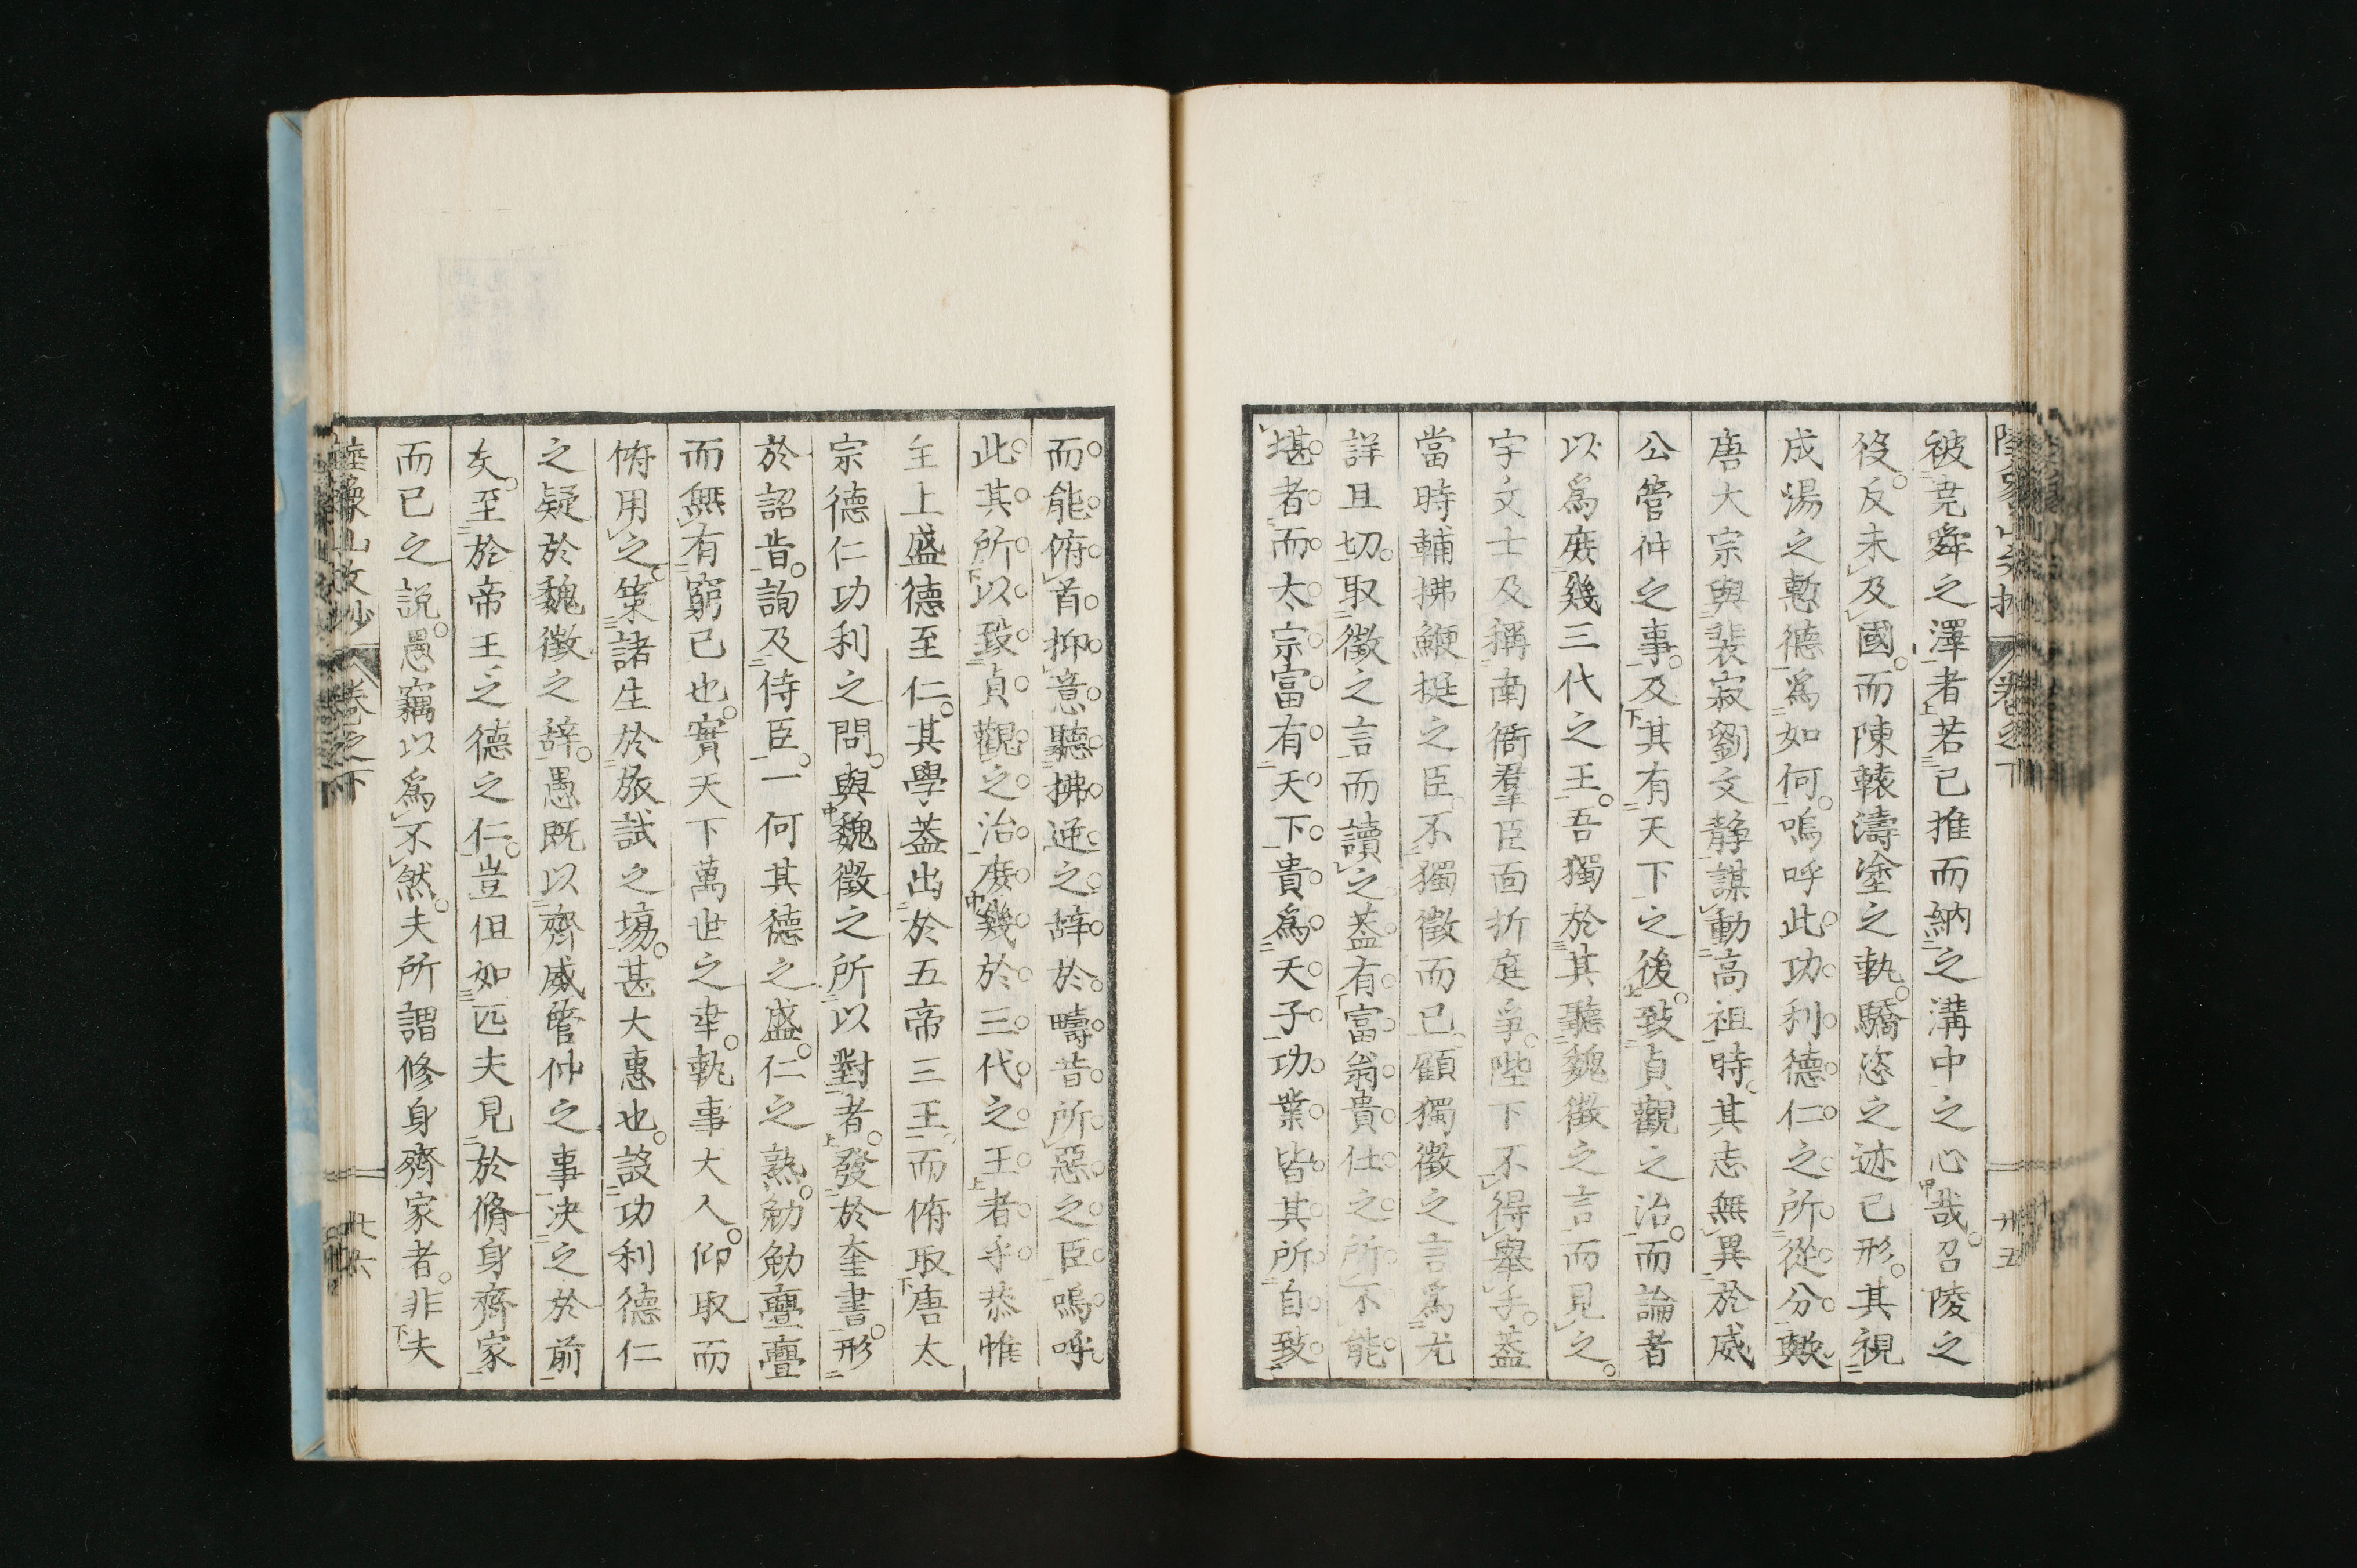 被堯舜之澤者若已推而納之溝中之心哉召陵之
役反未及國而陳轅濤塗之執驕恣之迹已形其視
成湯之慙德爲如何嗚呼此功利德仁之所從分歟
唐大宗與裴寂劉文靜謀動高祖時其志無異於威
公管仲之事及其有天下之後致貞觀之治而論者
以爲庻幾三代之王吾獨於其聽魏徵之言而見之
宇文士及稱南衙羣臣面折庭爭陛下不得舉手蓋
當時輔拂鯁挺之臣不獨徵而已顧獨徵之言爲尤
詳且切取徵之言而讀之蓋有富翁貴仕之所不能
堪者而太宗富有天下貴爲天子功業皆其所自致
而能俯首抑意聽拂逆之辞於疇昔所惡之臣嗚呼
此其所以致貞觀之治庻幾於三代之王者乎恭惟
主上盛德至仁其學蓋出於五帝三王而俯取唐太
宗德仁功利之問與魏徵之所以對者發於奎書形
於詔旨詢及侍臣一何其德之盛仁之熟勉勉亹亹
而無有窮已也實天下萬世之幸執事大人仰取而
俯用之策諸生於旅試之場甚大惠也設功利德仁
之疑於魏徵之辞愚既以齊威管仲之事决之於前
矣至於帝王之德之仁豈但如匹夫見於脩身齊家
而已之說愚竊以爲不然夫所謂修身齊家者非夫
陸象山文抄 卷之下 廿六